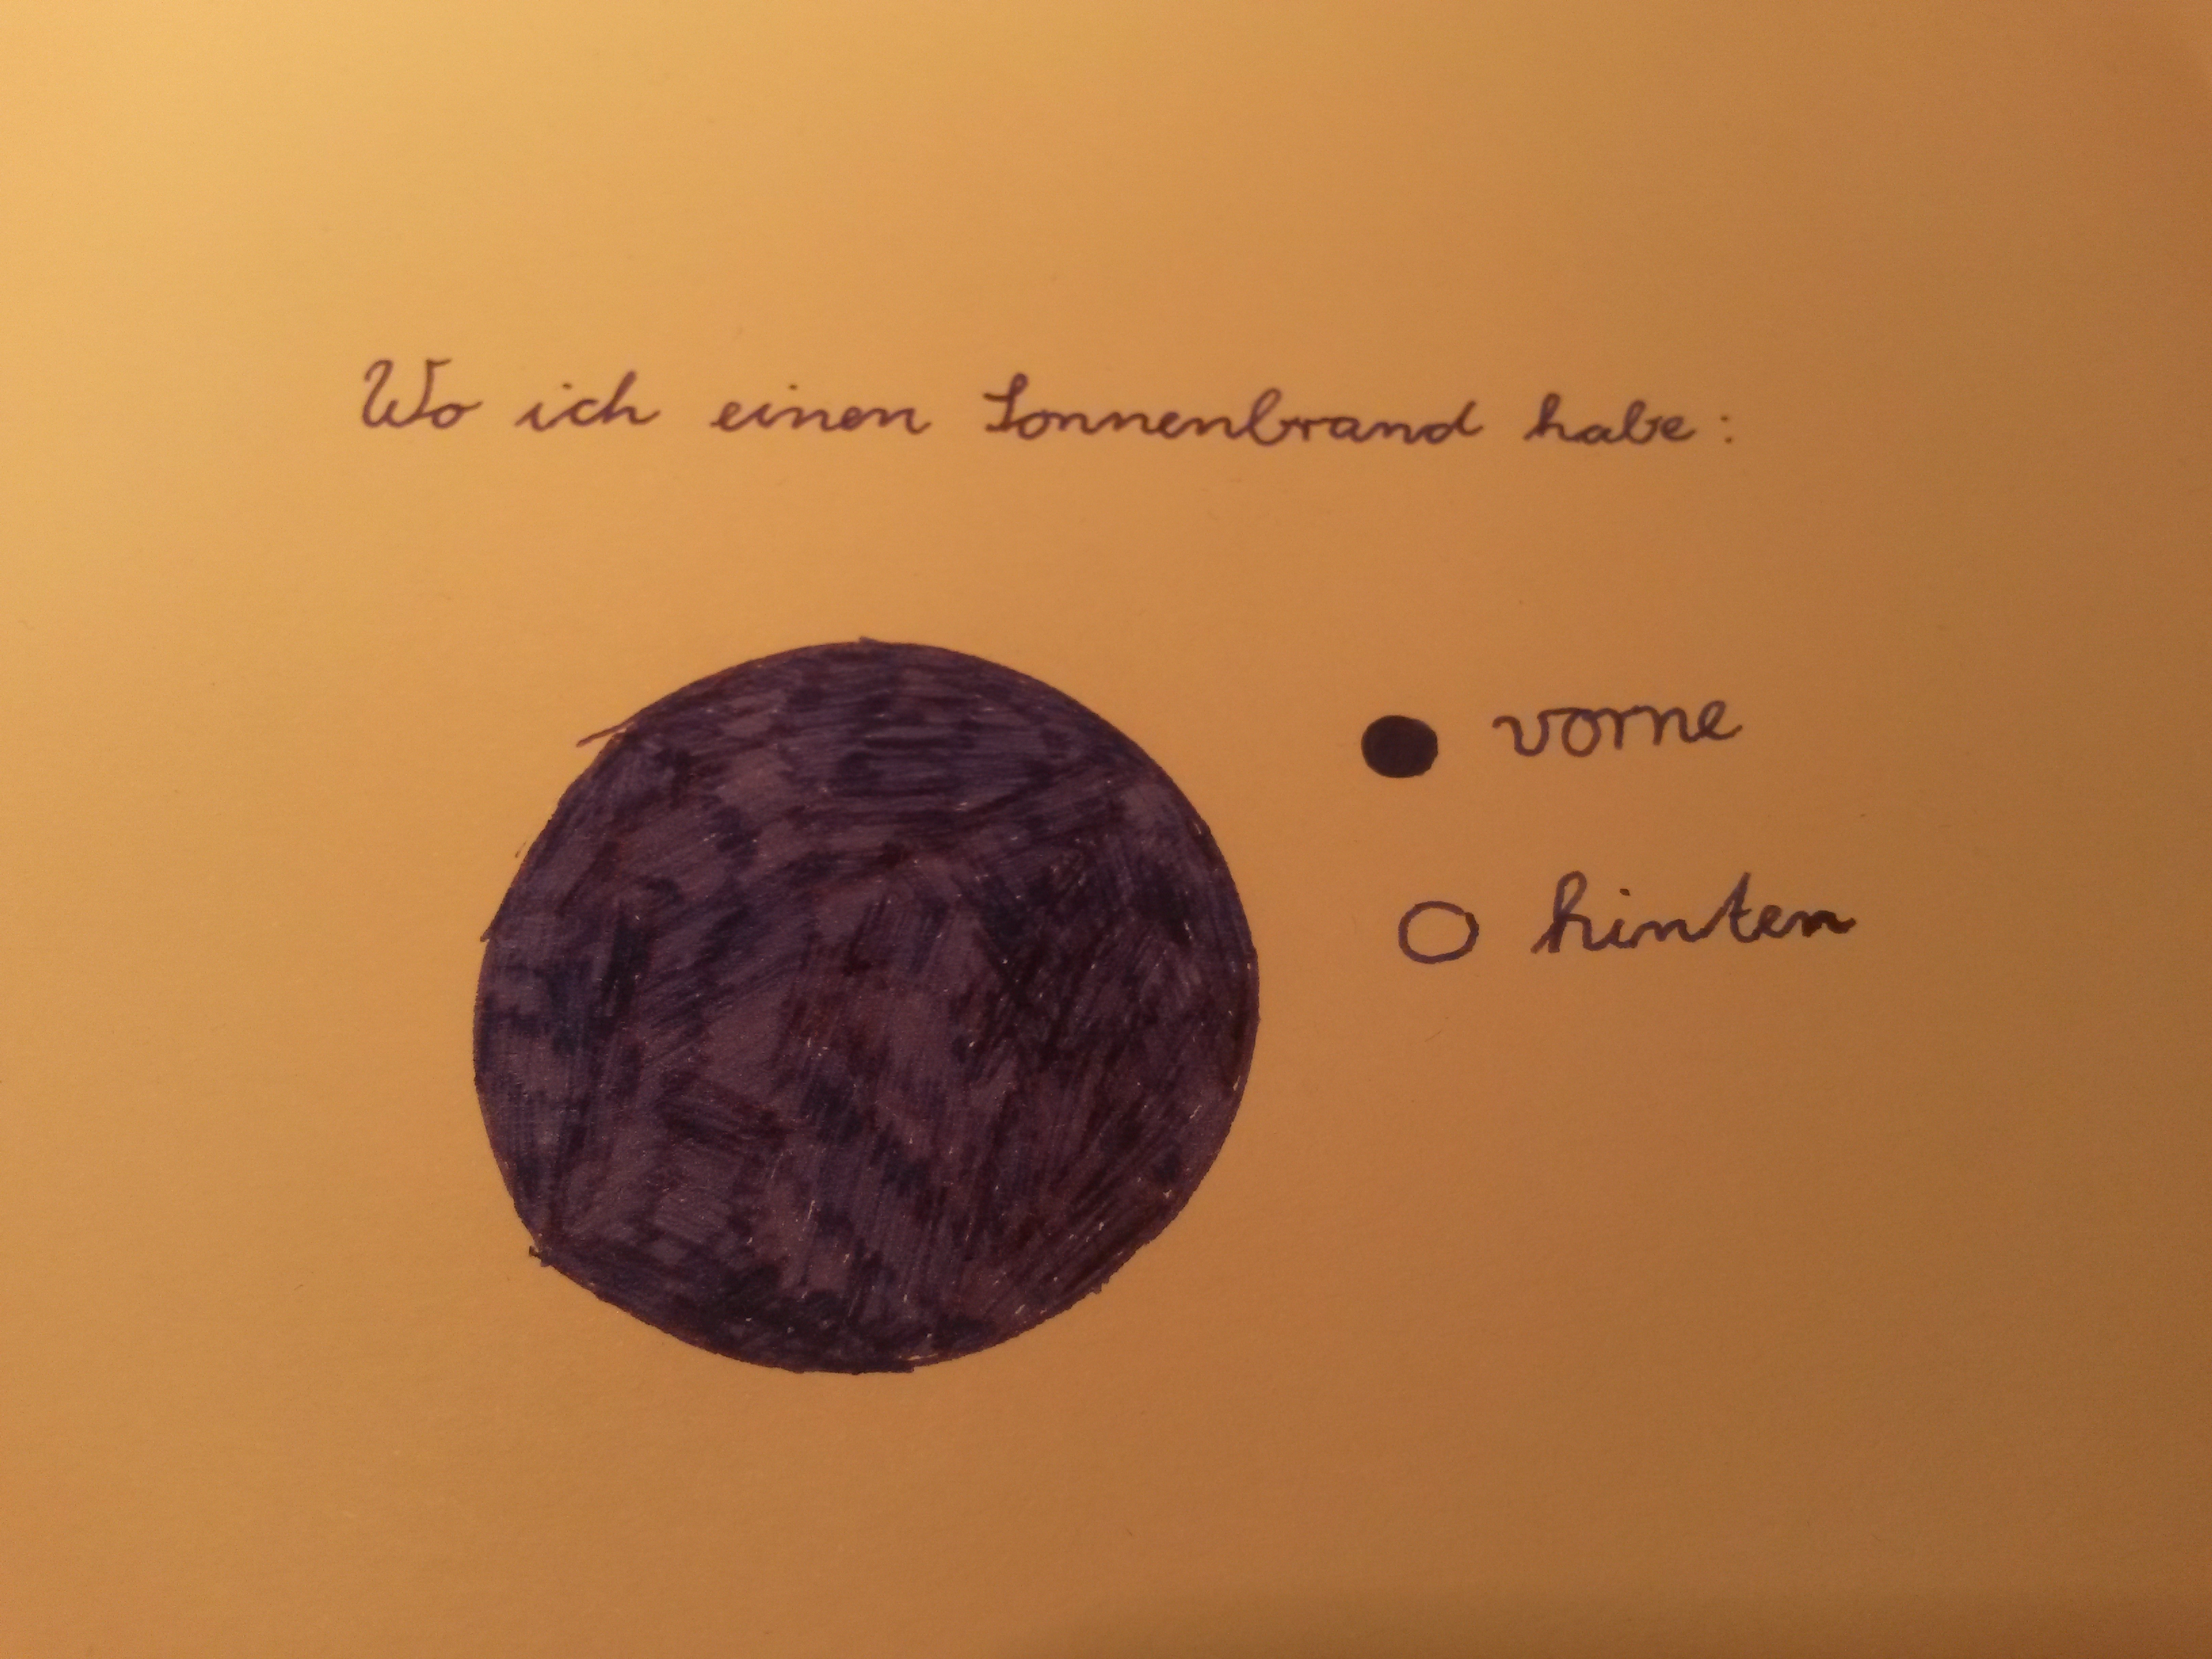 Wo ich einen Sonnenbrand habe:
vorne
hinten